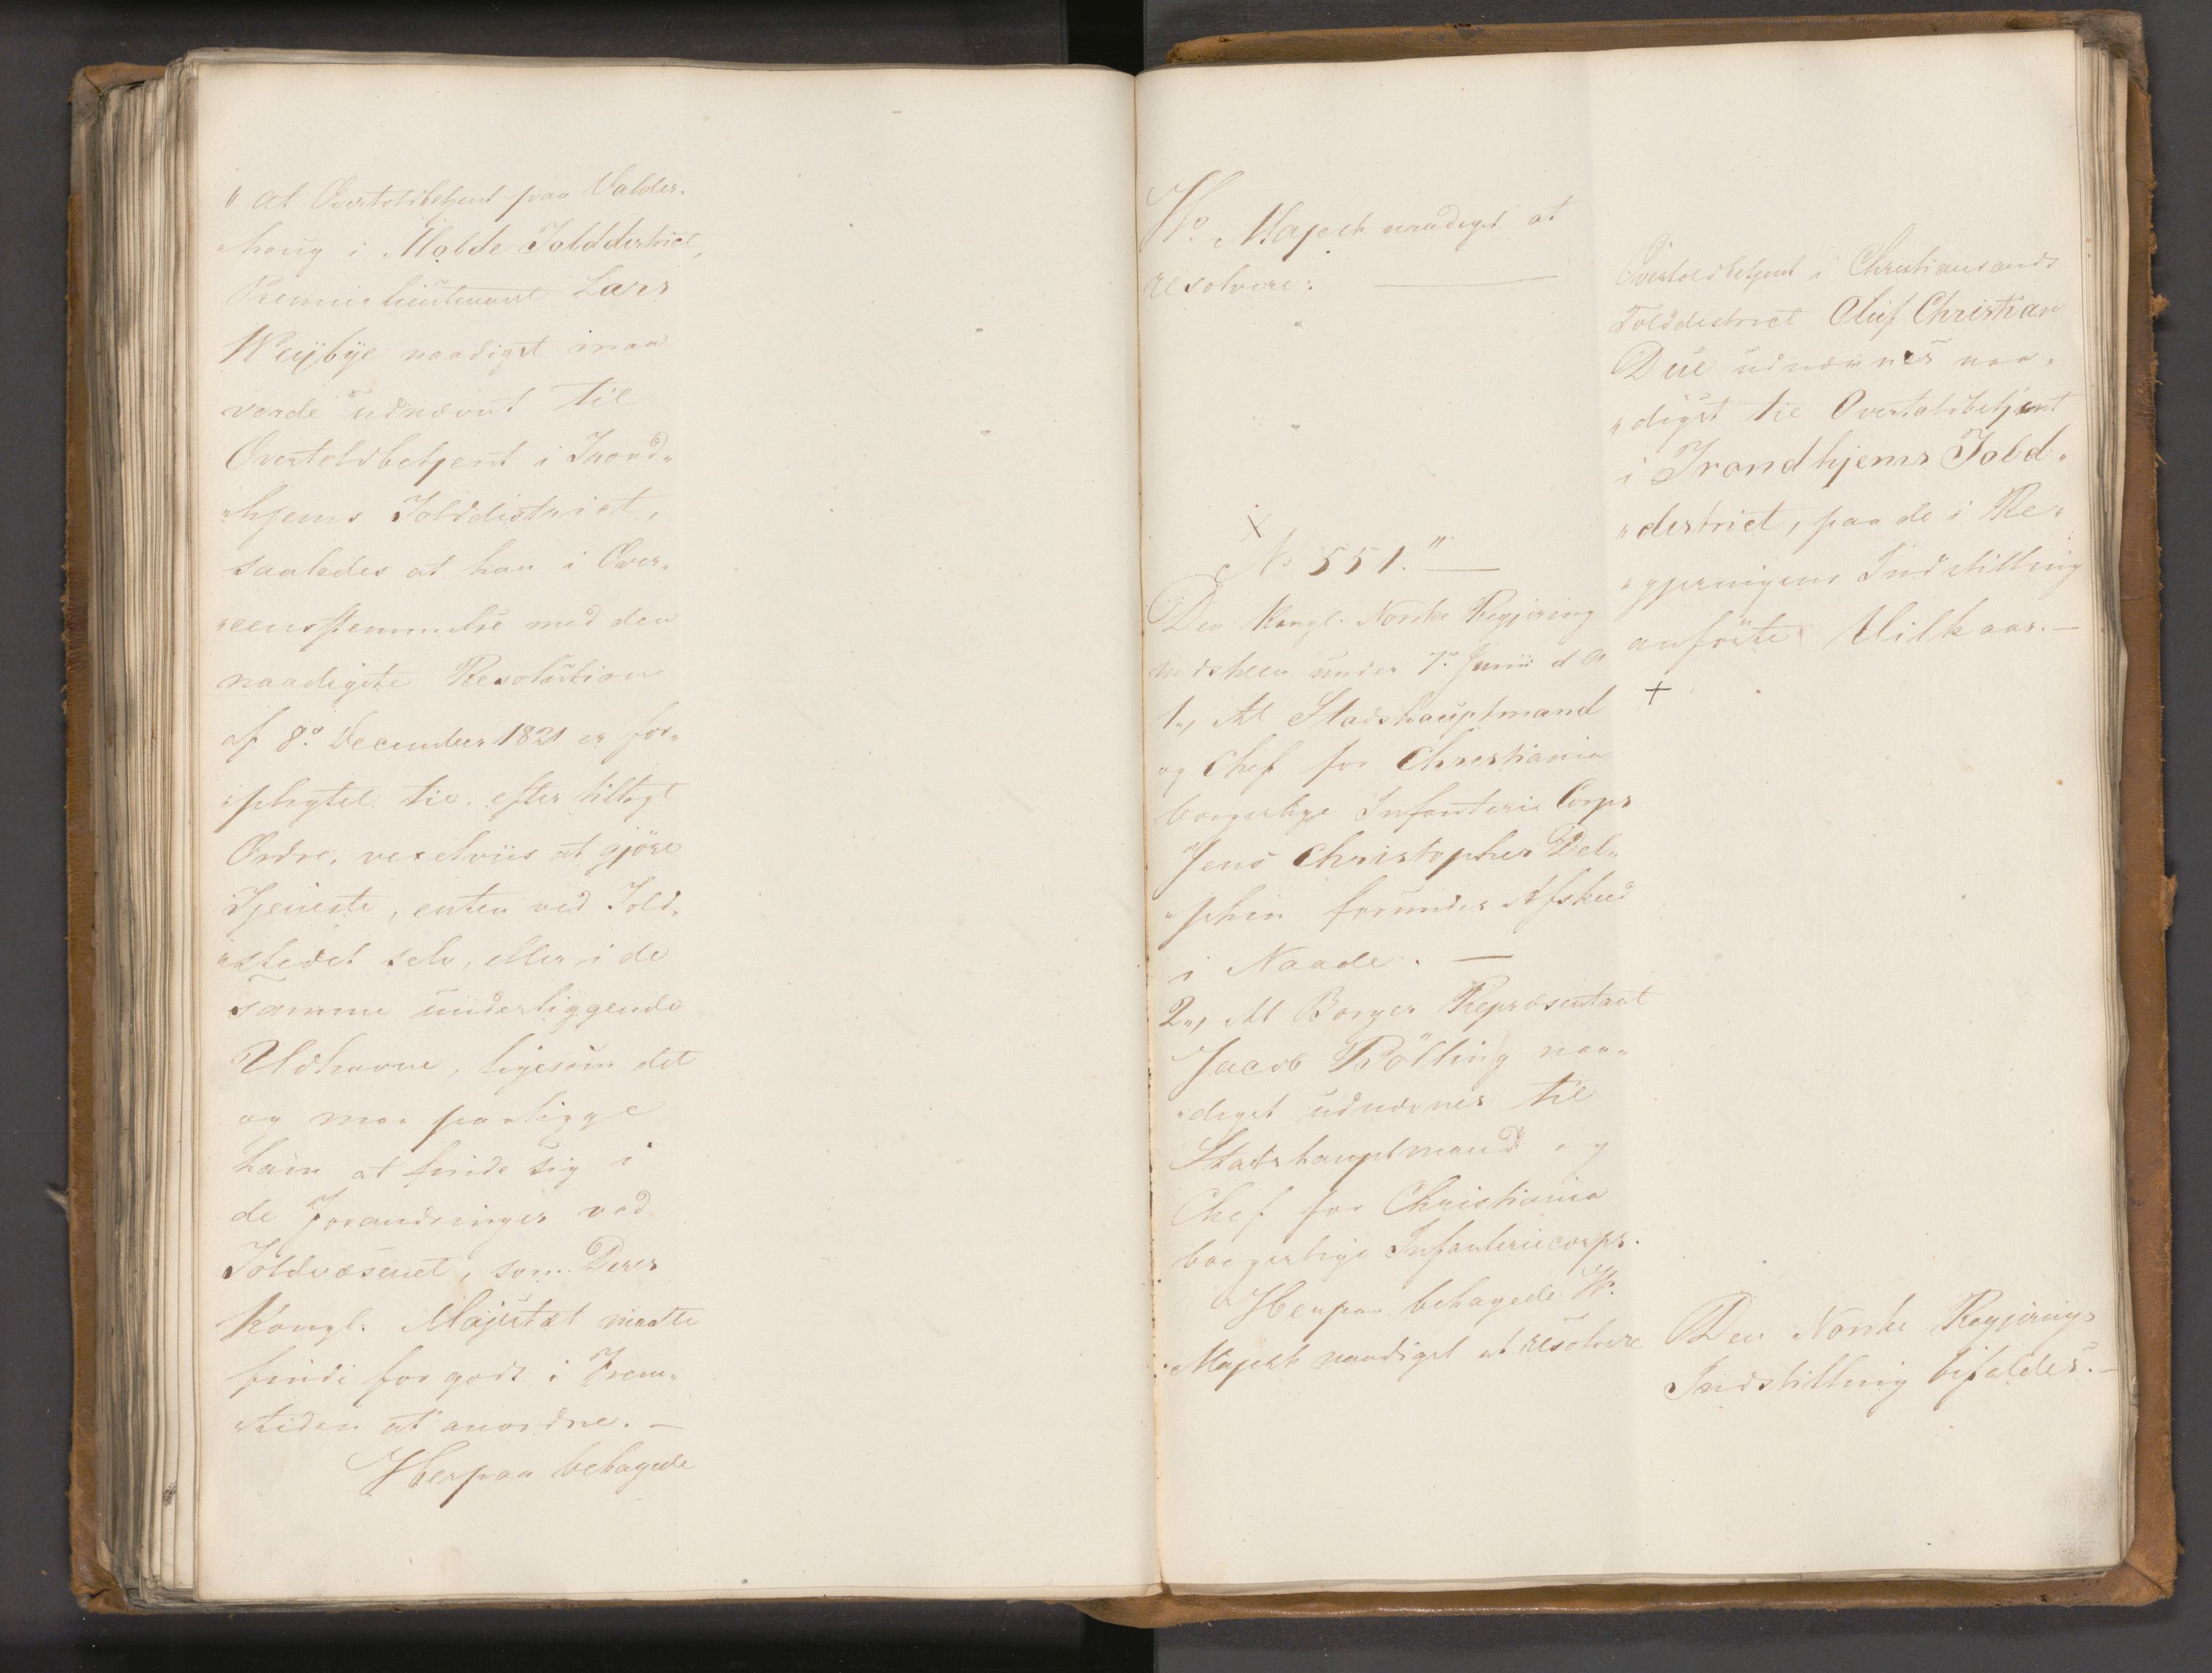 " at Overtoldbetjent paa Valder-
"houg i Molde Tolddistrict,
Premierlieutenant Lars
Weÿbÿe naadigst maa
vorde udnævnt til
Overtoldbetjent i Trond-
"hjems Tolddistrict,
saaledes at han i Over-
"eensstemmelse med den
naadigste Resolution
af 8de December 1821 er for-
"pligtet til, efter tillagt
Ordre, vexelviis at gjöre
Tjeneste, enten ved Told-
"stedet selv, eller i de
samme underliggende
Udhavne, ligesom det
og maa paaligge
ham at finde sig i
de Forandringer ved
Toldvæsenet, som Deres
Kongl. Majestæt maatte
finde for godt i Frem-
"tiden at anordne. —
Herpaa behagede
Hs. Majest. naadigst at
resolvere: —
Overtoldbetjent i Christiansands
Tolddistrict Oluf Christian
Due udnævnes naa-
"digst til Overtoldbetjent
i Trondhjems Told-
"district, paa de i Re-
"gjeringens Indstilling
anförte Vilkaar. —
+
x
No 551." —
Den Kongl. Norske Regjering
indstiller under 7de Junii d. A.
1., At Stadshauptmand
og Chef for Christiania
borgerlige Infanterie Corps
Jens Christopher Del-
"phin forundes Afsked
i Naade. —
2., At Borger Repræsentant
Jacob Rölling naa-
"digst udnævnes til
Stadshauptmand og
Chef for Christiania
borgerlige Infanteriecorps.
Herpaa behagede Hs.
Majest. naadigst at resolvere
Den Norske Regjerings
Indstilling bifaldes. —